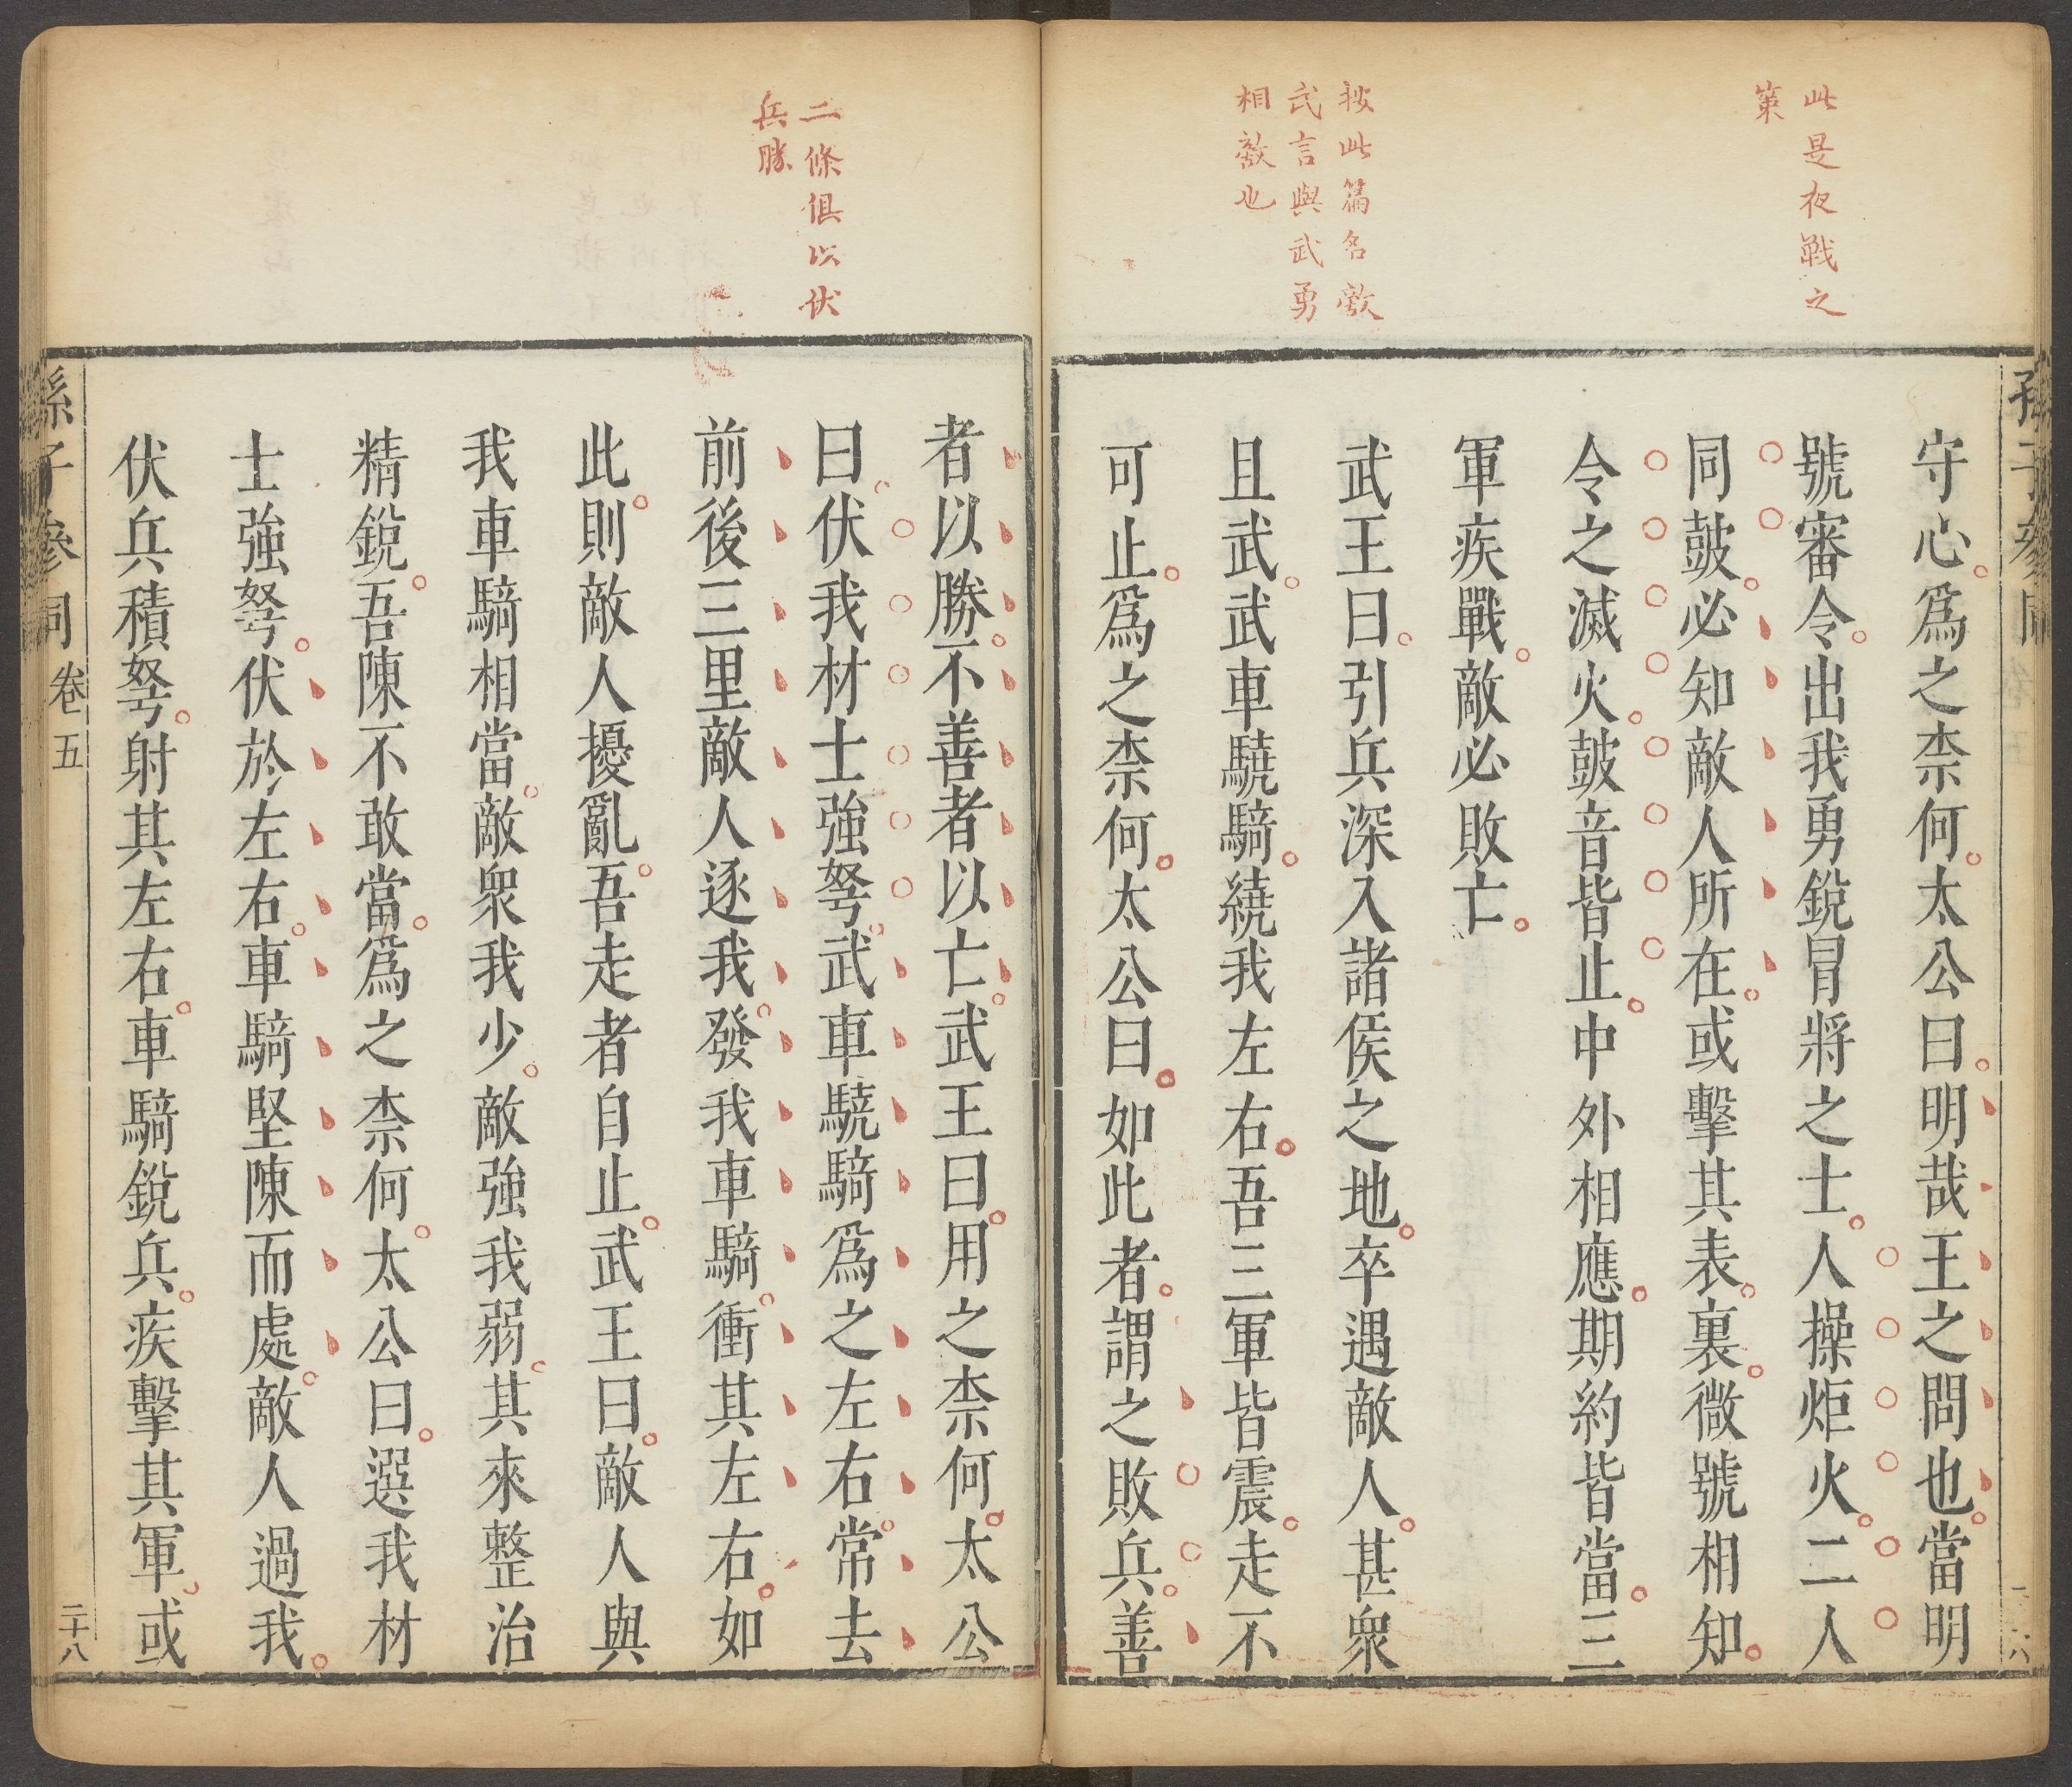 此是夜戰之
策
按此篇名敵
武言與武勇
相敵也
守心爲之柰何太公曰明哉王之問也當明
號審令出我勇銳冒將之士人操炬火二人
同皷必知敵人所在或擊其表裏微號相知
令之滅火皷音皆止中外相應期約皆當三
軍疾戰敵必敗亡
武王曰引兵深入諸侯之地卒遇敵人甚衆
且武武車驍騎繞我左右吾三軍皆震走不
可止爲之柰何太公曰如此者謂之敗兵善
二條俱以伏
兵勝
者以勝不善者以亡武王曰用之柰何太公
曰伏我材士強弩武車驍騎爲之左右常去
前後三里敵人逐我發我車騎衝其左右如
此則敵人擾亂吾走者自止武王曰敵人與
我車騎相當敵衆我少敵強我弱其來整治
精銳吾陳不敢當爲之柰何太公曰選我材
士強弩伏於左右車騎堅陳而處敵人過我
伏兵積弩射其左右車騎銳兵疾擊其軍或
孫子參同 卷五 二十八